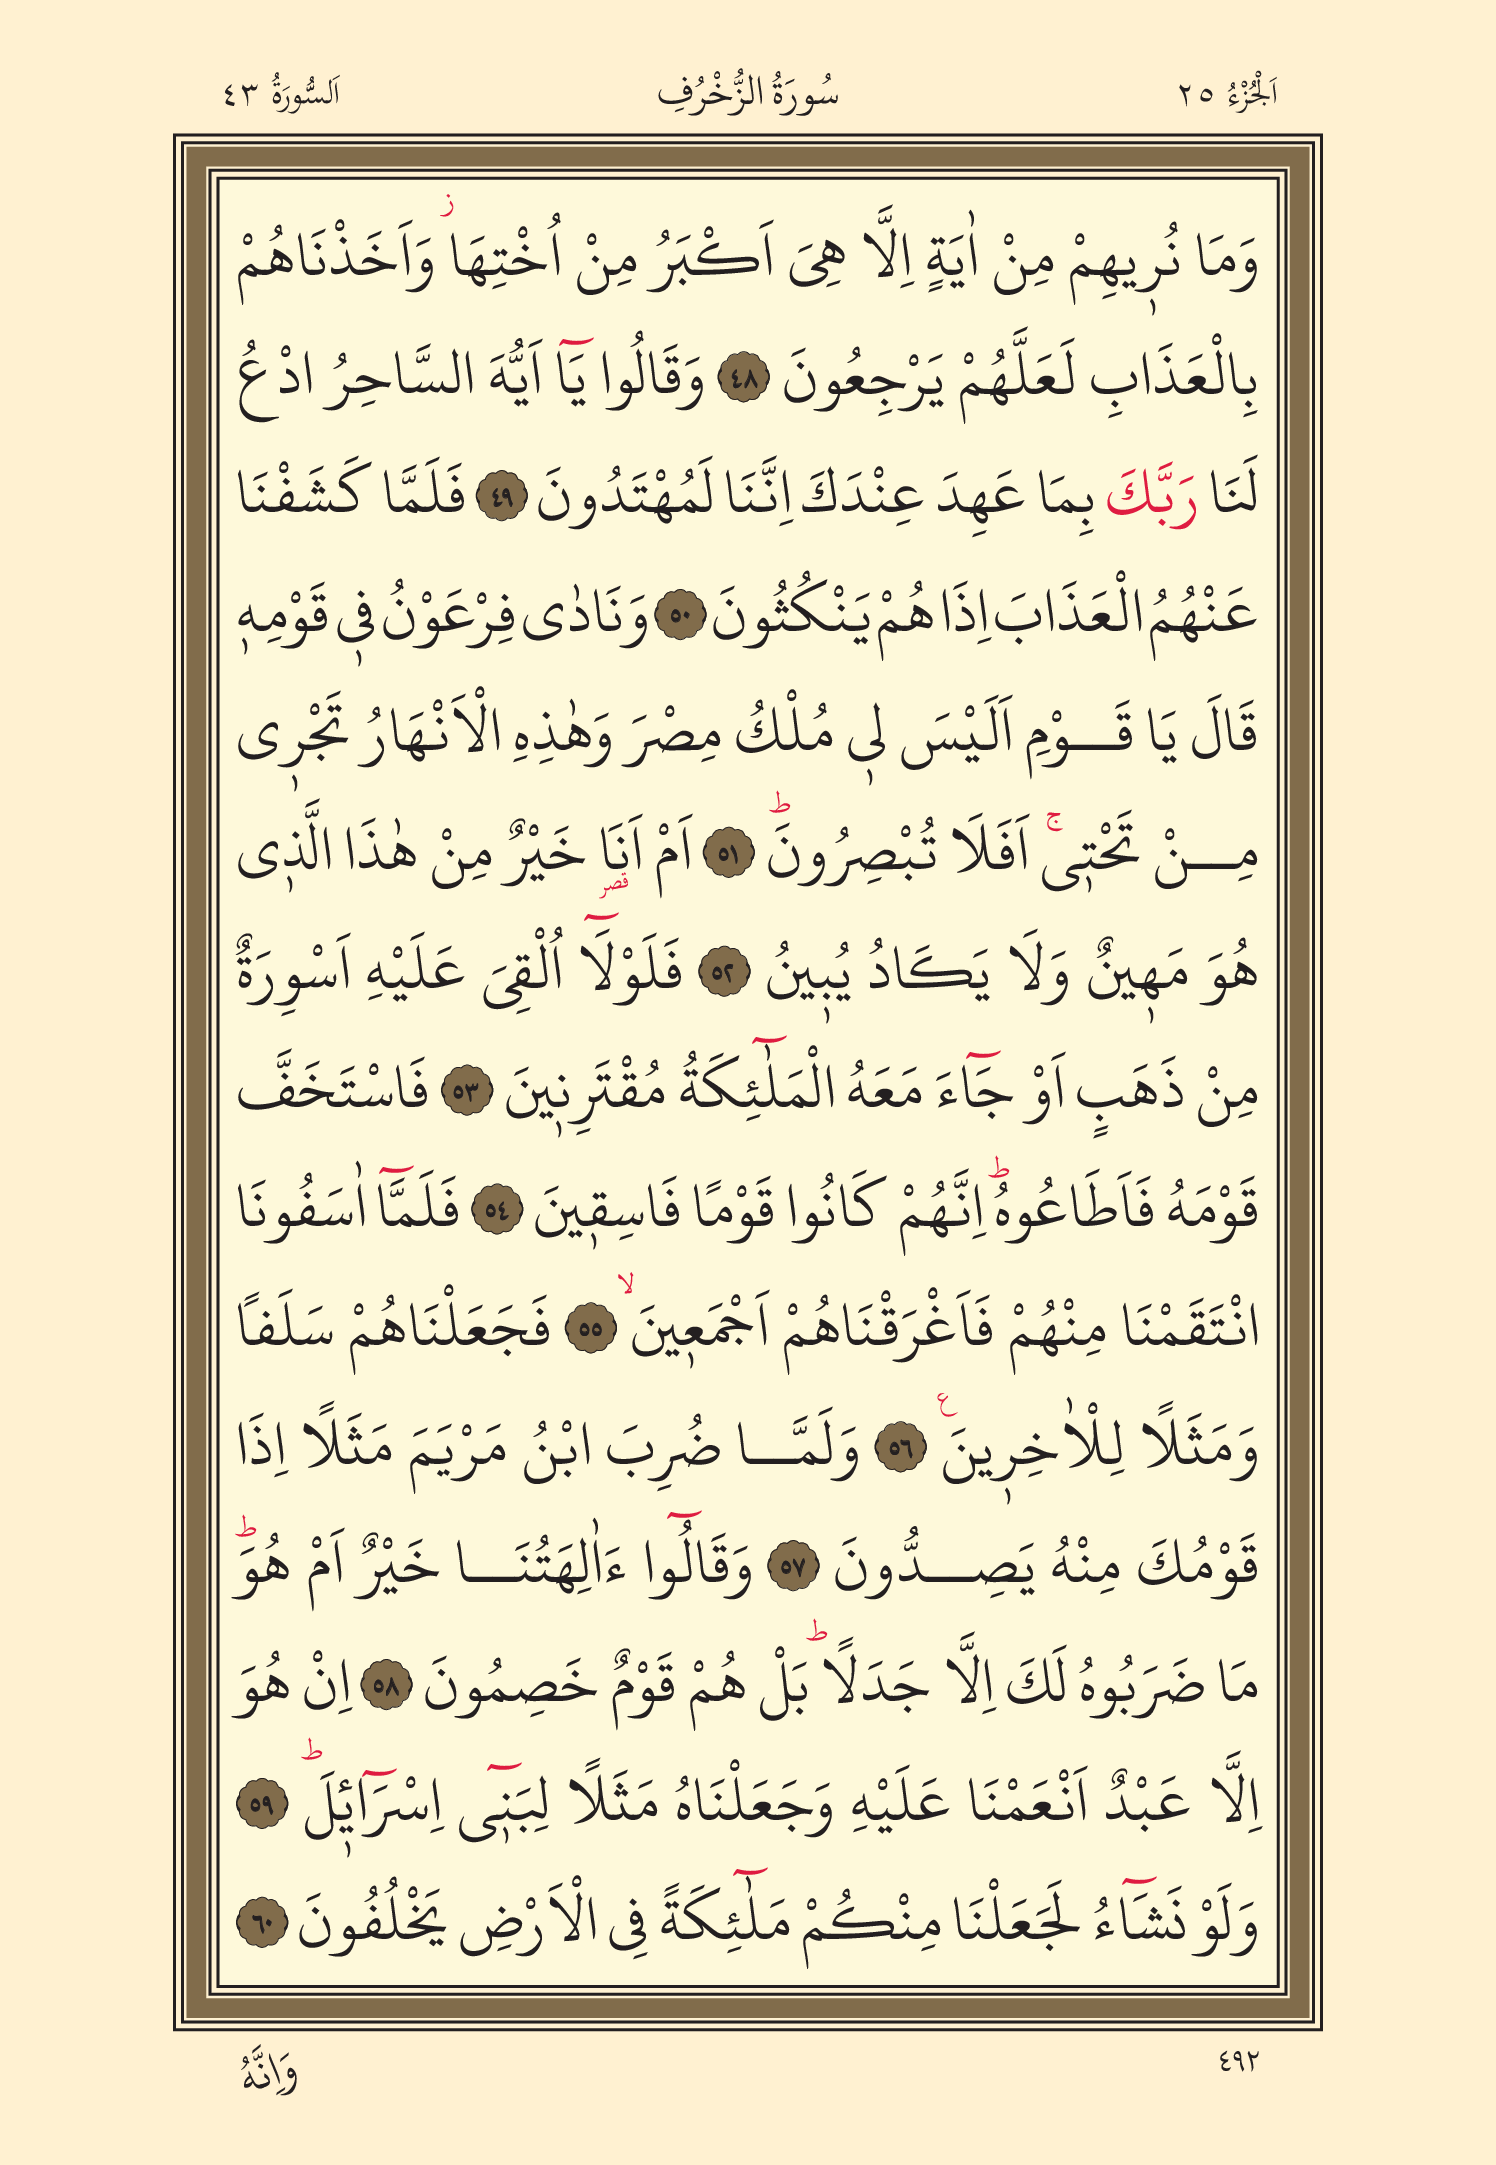 اَلْجُزْءُ ٢٥ سُورَةُ الزُّخْرُفِ اَلسُّورَةُ ٤٣
وَمَا نُر۪يهِمْ مِنْ اٰيَةٍ اِلَّا هِيَ اَكْبَرُ مِنْ اُخْتِهَاۘ وَاَخَذْنَاهُمْ
بِالْعَذَابِ لَعَلَّهُمْ يَرْجِعُونَ ٤٨ وَقَالُوا يَٓا اَيُّهَ السَّاحِرُ ادْعُ
لَنَا رَبَّكَ بِمَا عَهِدَ عِنْدَكَ اِنَّنَا لَمُهْتَدُونَ ٤٩ فَلَمَّا كَشَفْنَا
عَنْهُمُ الْعَذَابَ اِذَا هُمْ يَنْكُثُونَ ٥٠ وَنَادٰى فِرْعَوْنُ ف۪ي قَوْمِه۪
قَالَ يَا قَـــوْمِ اَلَيْسَ ل۪ي مُلْكُ مِصْرَ وَهٰذِهِ الْاَنْهَارُ تَجْر۪ي
مِـــنْ تَحْت۪يۚ اَفَلَا تُبْصِرُونَۜ ٥١ اَمْ اَنَا۬ خَيْرٌ مِنْ هٰذَا الَّذ۪ي
هُوَ مَه۪ينٌ وَلَا يَكَادُ يُب۪ينُ ٥٢ فَلَوْلَٓا اُلْقِيَ عَلَيْهِ اَسْوِرَةٌ
مِنْ ذَهَبٍ اَوْ جَٓاءَ مَعَهُ الْمَلٰٓئِكَةُ مُقْتَرِن۪ينَ ٥٣ فَاسْتَخَفَّ
قَوْمَهُ فَاَطَاعُوهُۜ اِنَّهُمْ كَانُوا قَوْمًا فَاسِق۪ينَ ٥٤ فَلَمَّٓا اٰسَفُونَا
انْتَقَمْنَا مِنْهُمْ فَاَغْرَقْنَاهُمْ اَجْمَع۪ينَۙ ٥٥ فَجَعَلْنَاهُمْ سَلَفًا
وَمَثَلًا لِلْاٰخِر۪ينَ۟ ٥٦ وَلَمَّـــا ضُرِبَ ابْنُ مَرْيَمَ مَثَلًا اِذَا
قَوْمُكَ مِنْهُ يَصِـــدُّونَ ٥٧ وَقَالُٓوا ءَاٰلِهَتُنَـــا خَيْرٌ اَمْ هُوَۜ
مَا ضَرَبُوهُ لَكَ اِلَّا جَدَلًاۜ بَلْ هُمْ قَوْمٌ خَصِمُونَ ٥٨ اِنْ هُوَ
اِلَّا عَبْدٌ اَنْعَمْنَا عَلَيْهِ وَجَعَلْنَاهُ مَثَلًا لِبَن۪ٓي اِسْرَٓائ۪لَۜ ٥٩
وَلَوْ نَشَٓاءُ لَجَعَلْنَا مِنْكُمْ مَلٰٓئِكَةً فِي الْاَرْضِ يَخْلُفُونَ ٦٠
٤٩٢ وَاِنَّهُ